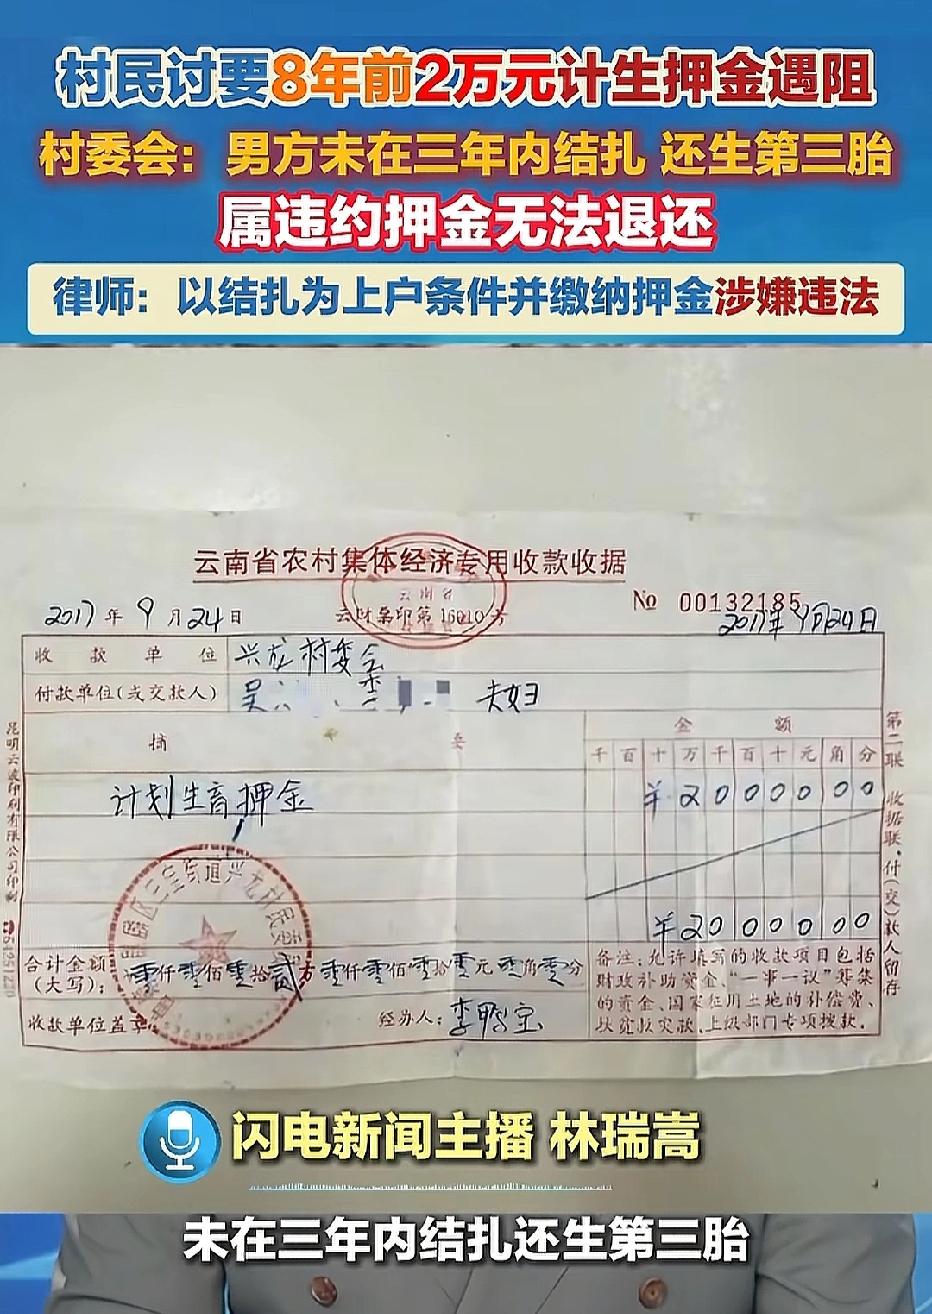 村民讨要8年前2万元计生押金遇阻
村委会：男方未在三年内结扎 还生第三胎
属违约押金无法退还
律师：以结扎为上户条件并缴纳押金涉嫌违法
云南省农村集体经济专用收款收据
云南省
№ 00132185
2017年9月24日
2017年9月24日
收款单位 兴龙村委会
付款单位(或交款人) 吴 李 夫妇
摘要
金额
千百十万千百十元角分
计划生育押金
¥2000000
¥2000000
合计金额
(大写): 零仟零佰零拾贰万零仟零佰零拾零元零角零分
收款单位盖章
经办人: 李鸭宝
备注: 允许填写的收款项目包括
财政补助资金、“一事一议”筹集
的资金、国家征用土地的补偿费、
扶贫救灾款、上级部门专项拨款.
第二联 收据联.付(交)款人留存
昆明云波印刷有限公司印制
闪电新闻主播 林瑞嵩
未在三年内结扎还生第三胎